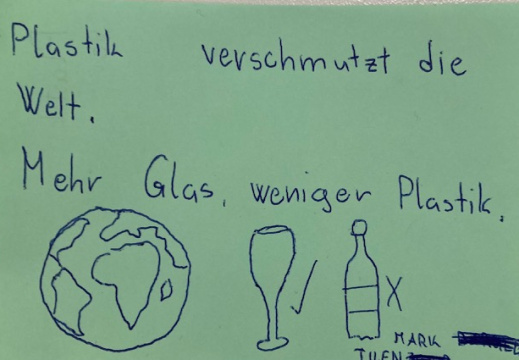 Plastik verschmutzt die
Welt.
Mehr Glas, weniger Plastik.
MARK